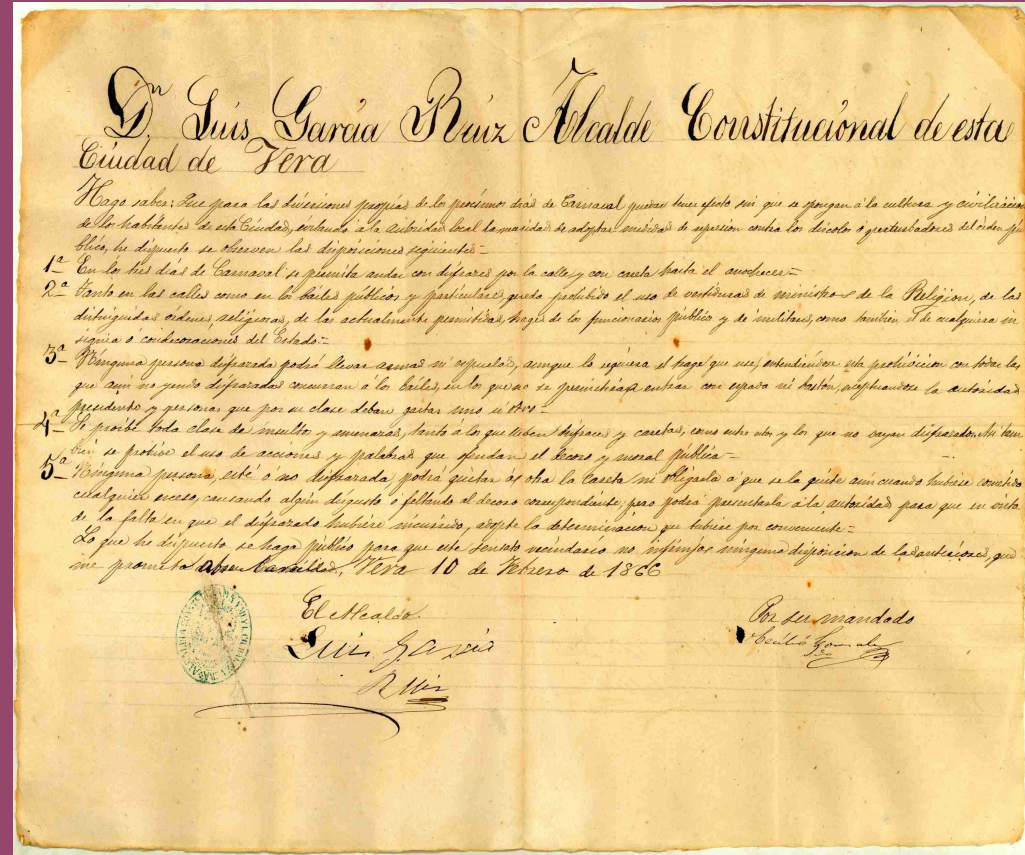 Dn Luis García Ruiz Alcalde Constitucional de esta
Ciudad de Vera
Hago saber: Que para las diversiones propias de los procsimos dias de Carnaval puedan tener efecto sin que se opongan á la cultura y civilizacion
de los habitantes de esta Ciudad, evitando á la autoridad local la necesidad de adoptar medidas de represion contra los díscolos ó perturbadores del órden pu
blico, he dispuesto se observen las disposiciones siguientes=
1ª En los tres dias de Carnaval se permita andar con disfraces por la calle y con careta hasta el anochecer=
2ª Tanto en las calles como en los bailes públicos y particulares, queda prohibido el uso de vestiduras de ministros de la Religion, de las
distinguidas ordenes religiosas, de las actualmente permitidas, trages de los funcionarios publicos y de militares, como tambien el de cualquiera in
signia o condecoraciones del Estado=
3ª Ninguna persona disfrazada podrá llevar armas ni espuelas, aunque lo requiera el trage que use, entendiendose esta prohibicion con todas las
que aun no yendo disfrazadas concurran á los bailes, en los que no se permitirá entrar con espada ni baston, esceptuandose la autoridad
presidente y personas que por su clase deban usar uno ú otro=
4ª Se proibe toda clase de insultos y amenazas, tanto á los que lleven disfraces y caretas, como entre estos y los que no vayan disfrazados. Asi tam
bien se prohive el uso de acciones y palabras que ofendan el decoro y moral pública=
5ª Ninguna persona, esté ó no disfrazada, podrá quitar á otra la careta ni obligarla a que se la quite aun cuando hubiese cometido
cualquier exceso, causando algun disgusto ó faltando al decoro correspondiente; pero podrá presentarla á la autoridad para que en vista
de la falta en que el disfrazado hubiere incurrido, adopte la determinacion que tubiere por conveniente=
Lo que he dispuesto se haga público para que este sensato vecindario no infrinja ninguna disposicion de las anteriores, que
me prometo Vera 10 de Febrero de 1866
El Alcalde
Luis Garcia
Ruiz
Por su mandado
Gonzalez